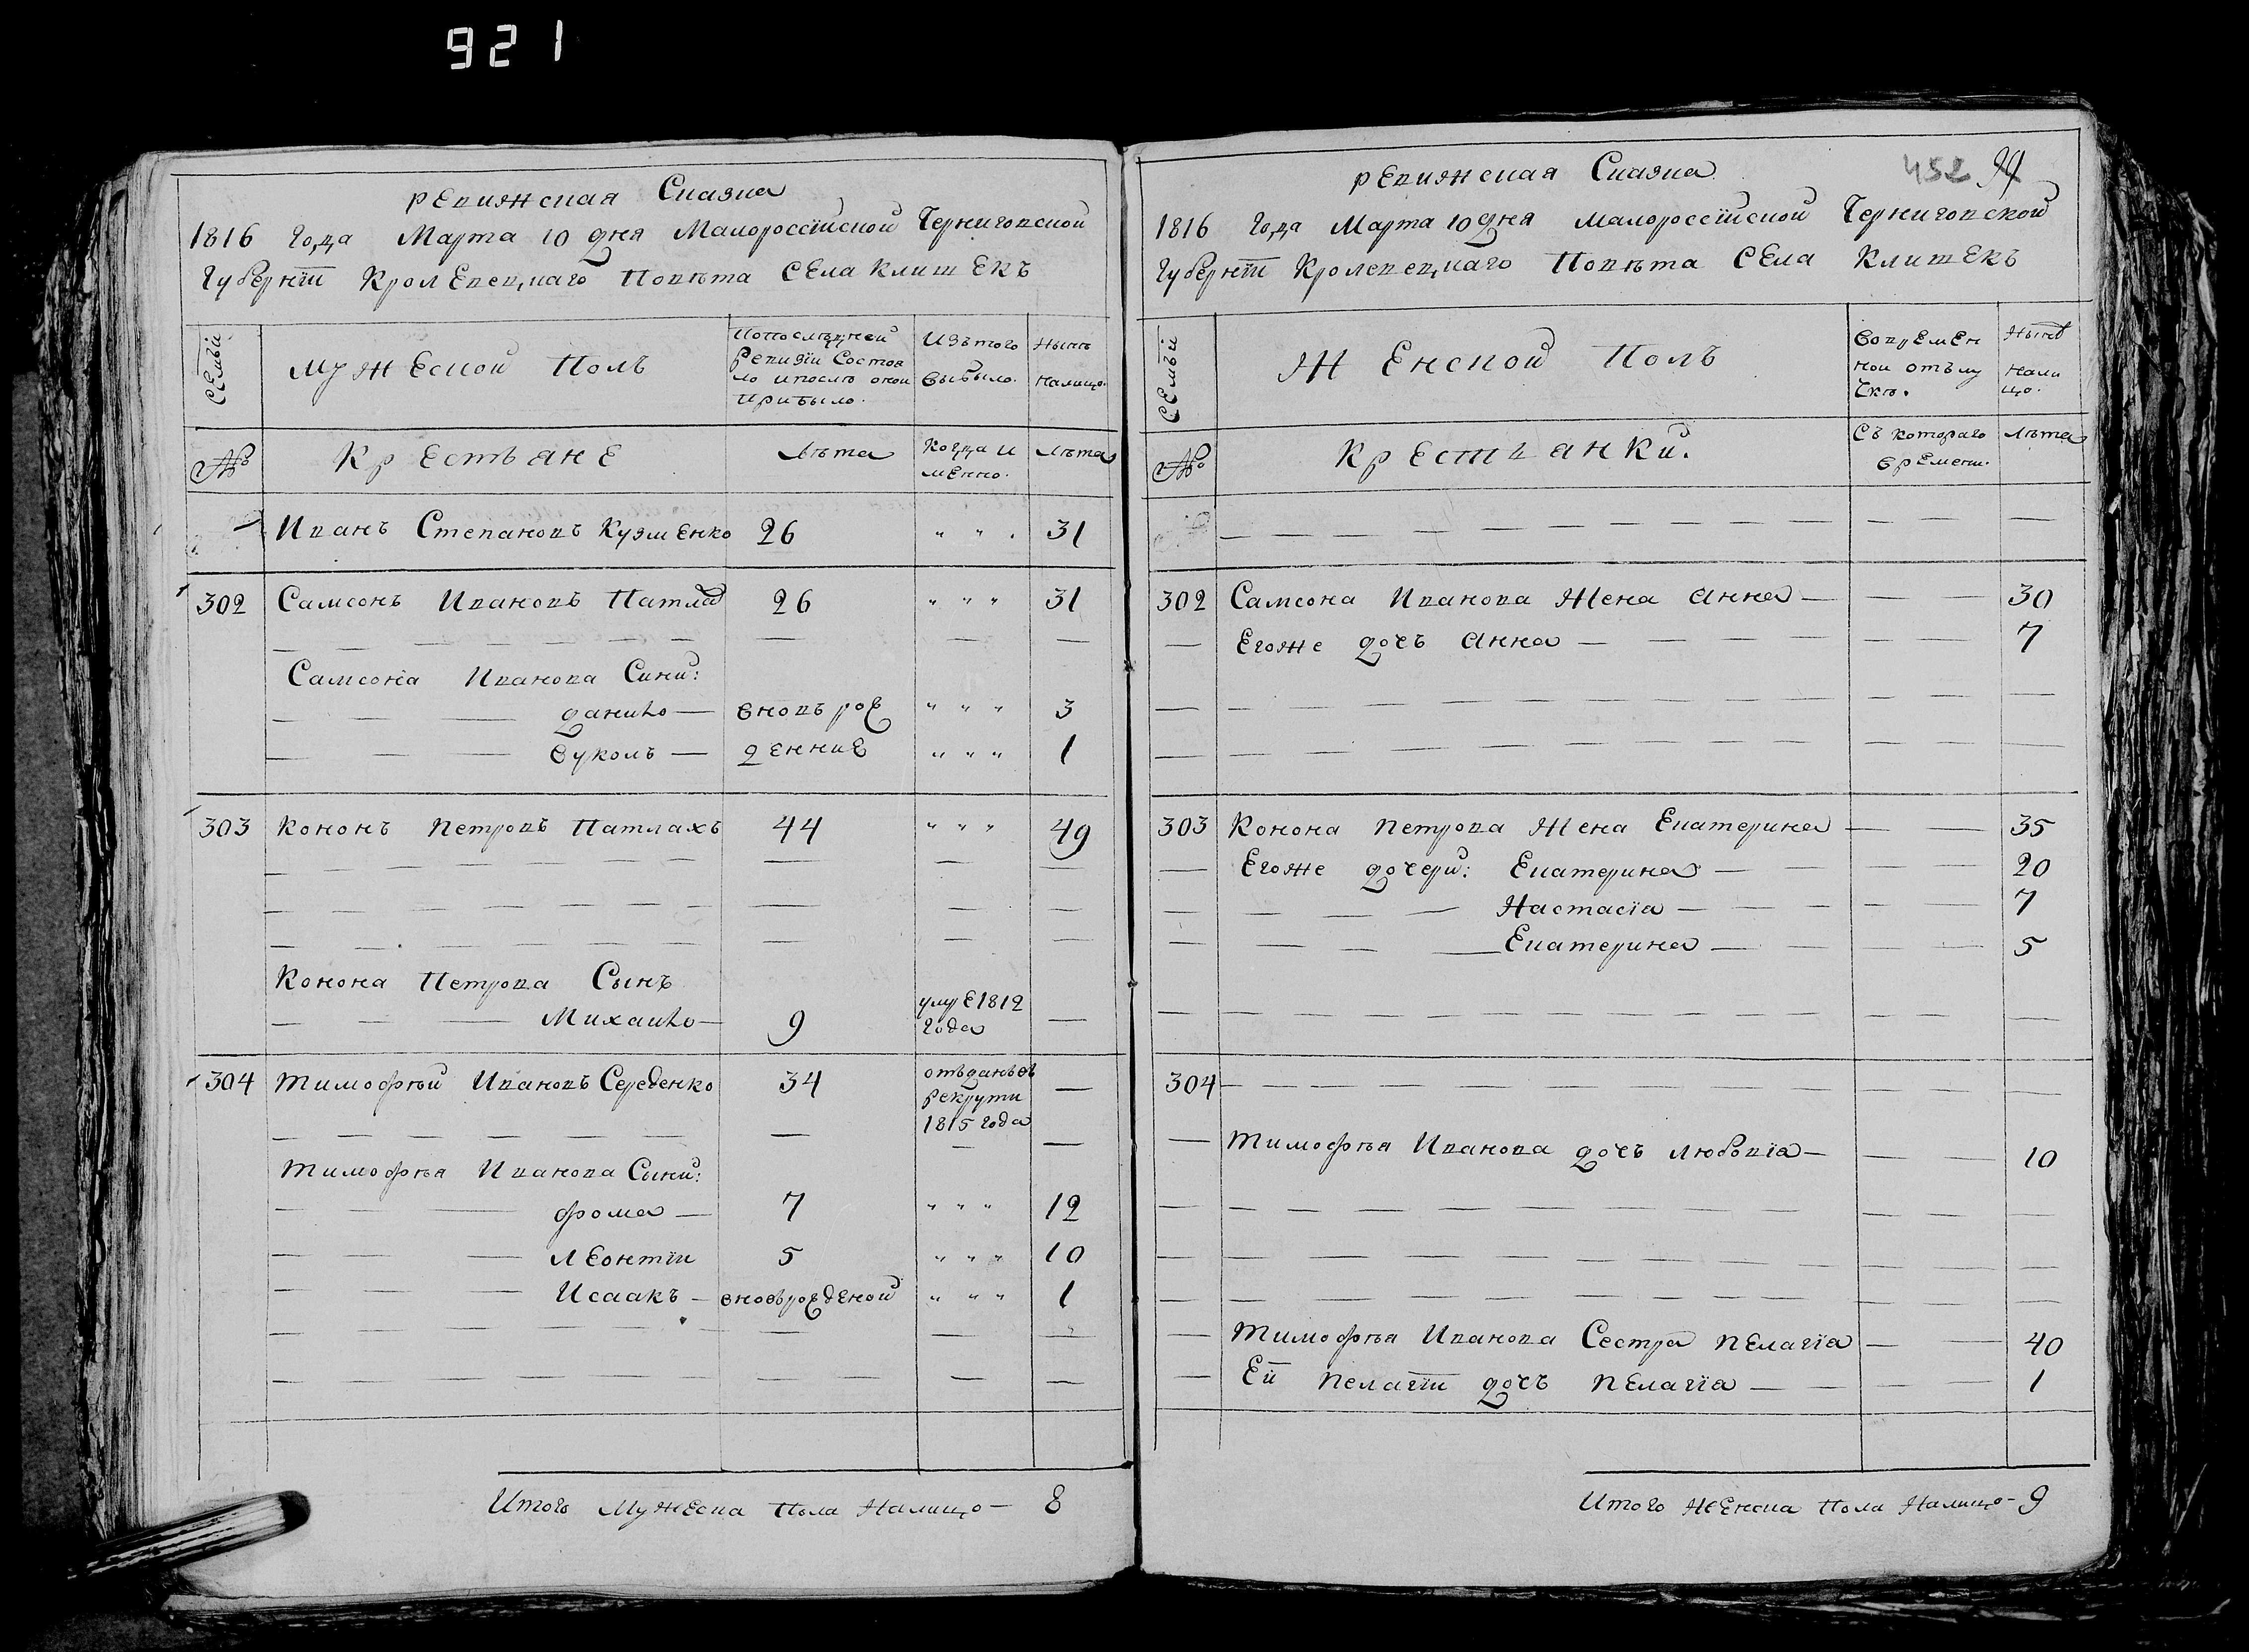 921
ревижская Сказка
1816 Года Марта 10 дня Малороссійской Черниговской
Губерніи Кролевецкаго Повѣта Села Клишекъ
Семьи
Мужеской Полъ
По последней ревизіи Состояло и после оной Прибыло.
Изъ того выбыло.
Нынѣ на лицо.
№
Крестьяне
Лѣта
Когда именно.
Лѣта
Иванъ Степановъ Кузменко 26 " " " 31
302 Самсонъ Ивановъ Патла 26 " " " 31
Самсона Иванова Сини:
Данило — вновь рож " " " 3
Вуколъ — денние " " " 1
303 Кононъ Петровъ Патлахъ 44 " " " 49
Конона Петрова Сынъ
Михаило — 9 умре 1812 года —
304 Тимофѣй Ивановъ Середенко 34 отъданъ въ рекрути 1815 года —
Тимофѣя Иванова Сыни:
Фома — 7 " " " 12
Леонтіи 5 " " " 10
Исаакъ — вновьрожденой " " " 1
Итого Мужеска Пола Налицо — 8
452
ревижская Сказка
1816 Года Марта 10 дня Малороссійской Черниговской
Губерніи Кролевецкаго Повѣта Села Клишекъ
Семьи
Женской Полъ
Во временной отълучкѣ.
Нынѣ на лицо.
№
Крестьянки.
Съ котораго времени.
Лѣта
302 Самсона Иванова Жена Анна — 30
Егоже дочъ Анна — 7
303 Конона Петрова Жена Екатерина — 35
Егоже дочери: Екатерина — 20
Настасіа — 7
Екатерина — 5
304
Тимофѣя Иванова дочъ Любовіа — 10
Тимофѣя Иванова Сестра Пелагіа — 40
Еи Пелагіи дочъ Пелагіа — 1
Итого Женска Пола Налицо — 9